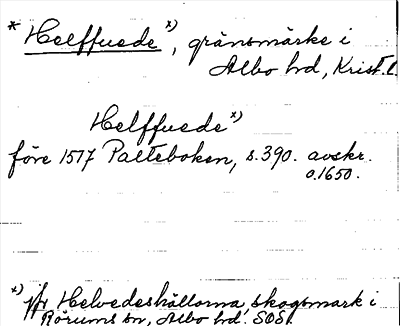 * Helffuede x), gränsmärke i
Albo hd, Krist. l.
Helffuede x)
före 1517 Palteboken, s. 390. avskr.
o. 1650.
x) jfr Helvedeshällorna, skogsmark i
Rörums sn, Albo hd. SOS